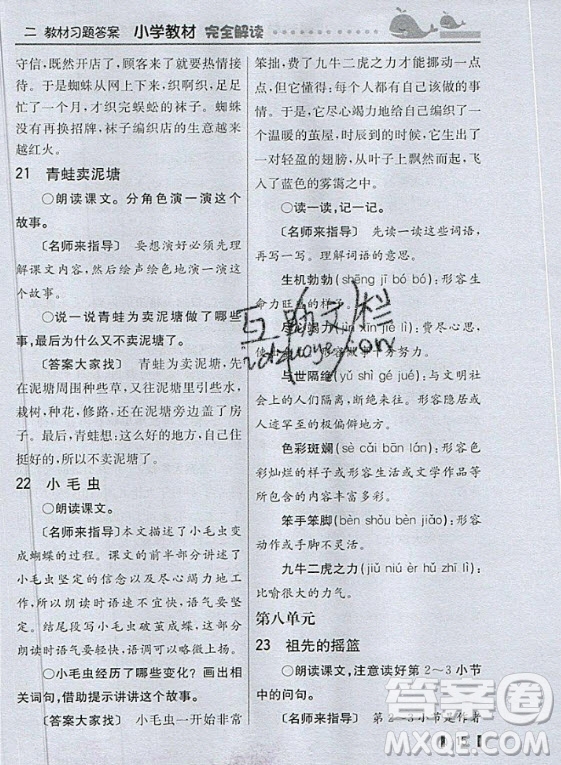 二 教材习题答案 小学教材 完全解读
守信，既然开了店，就要热情接
待。于是蜘蛛织啊织啊织，足足
忙了一个月，才织完蜈蚣的袜子。蜘蛛
没有再换招牌，袜子编织店的生意越来
越红火。
21 青蛙卖泥塘
○朗读课文。分角色演一演这个
故事。
〔名师来指导〕 要想演好必须先理
解课文内容，然后分角色进行演一演这
个故事。
○说一说青蛙为卖泥塘做了哪些
事，最后为什么又不卖泥塘了。
〔答案大家找〕 青蛙为卖泥塘，
在泥塘周围种些草，又往泥塘里引些水，
栽树，种花，修路，还在泥塘旁边盖了房
子。最后，青蛙想：这么好的地方，自己
住挺好，所以就不卖泥塘了。
22 小毛虫
○朗读课文。
〔名师来指导〕本文描述了小毛虫变
成蝴蝶的过程。课文的前半部分讲述了
小毛虫坚定的信念以及尽心竭力地工
作，所以朗读时语气要坚定，语速要平
缓。结尾段写小毛虫破茧成蝶，这部分
内容朗读时语速可以略微快些，语气要
坚定。
○小毛虫经历了哪些变化？画出相
关词句，借助提示讲讲这个故事。
〔答案大家找〕 小毛虫一开始非常
笨拙，费了九牛二虎之力才能挪动一点
点，但它懂得：每个人都有自己该做的事
情。于是，它尽心竭力地给自己编织了一
个温暖的茧屋，时辰到的时候，它生出了
一对轻盈的翅膀，从叶子上飘然而起，飞
入了蓝色的雾霭之中。
○读一读，记一记。
〔名师来指导〕 先读一读这些词语，
再写一写。理解词语的意思。
生机勃勃(shēng jī bó bó)：形容生
命力旺
尽心竭力(jìn xīn jié lì)：费尽心思，
使出
与世隔绝(yǔ shì gé jué)：与文明社
会上的人们隔离，生活不来往。形容隐居或
人迹难至的极偏僻地方。
色彩斑斓(sè cǎi bān lán)：形容色
彩灿烂的样子或者形容颜色非常多，色
彩绚丽。
笨手笨脚(bèn shǒu bèn jiǎo)：形容
动作不灵活。
九牛二虎之力(jiǔ niú èr hǔ zhī lì)：
比喻很大的力气。
第八单元
23 祖先的摇篮
○朗读课文，注意读好第2～3小节
中的问句。
〔名师来指导〕 第2～3小节是作者
互助文栏
答案圈